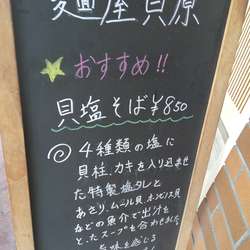 麺屋 貝原
おすすめ!!
貝塩そば ¥850
4種類の塩に
貝柱、カキを入り込ませ
た特製塩タレと
あさり、ムール貝、ホンビノス貝
などの魚介で出汁を
とったスープを合わせました
味を感じる